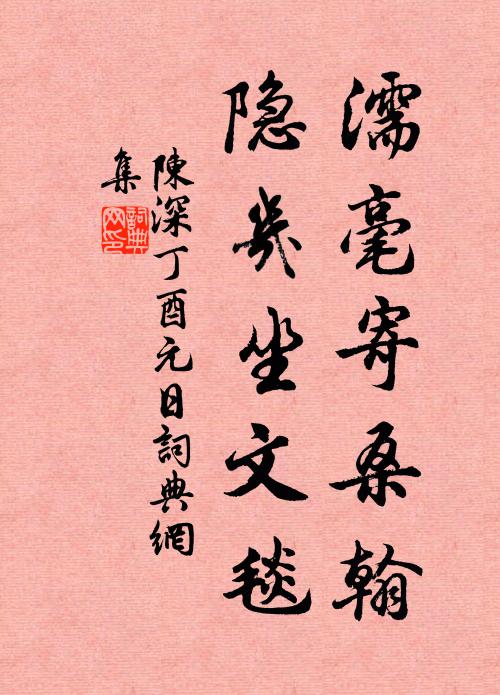 濡毫寄柔翰
隐幾坐文毯
陳深丁酉元日詞典網
集
詞典网印